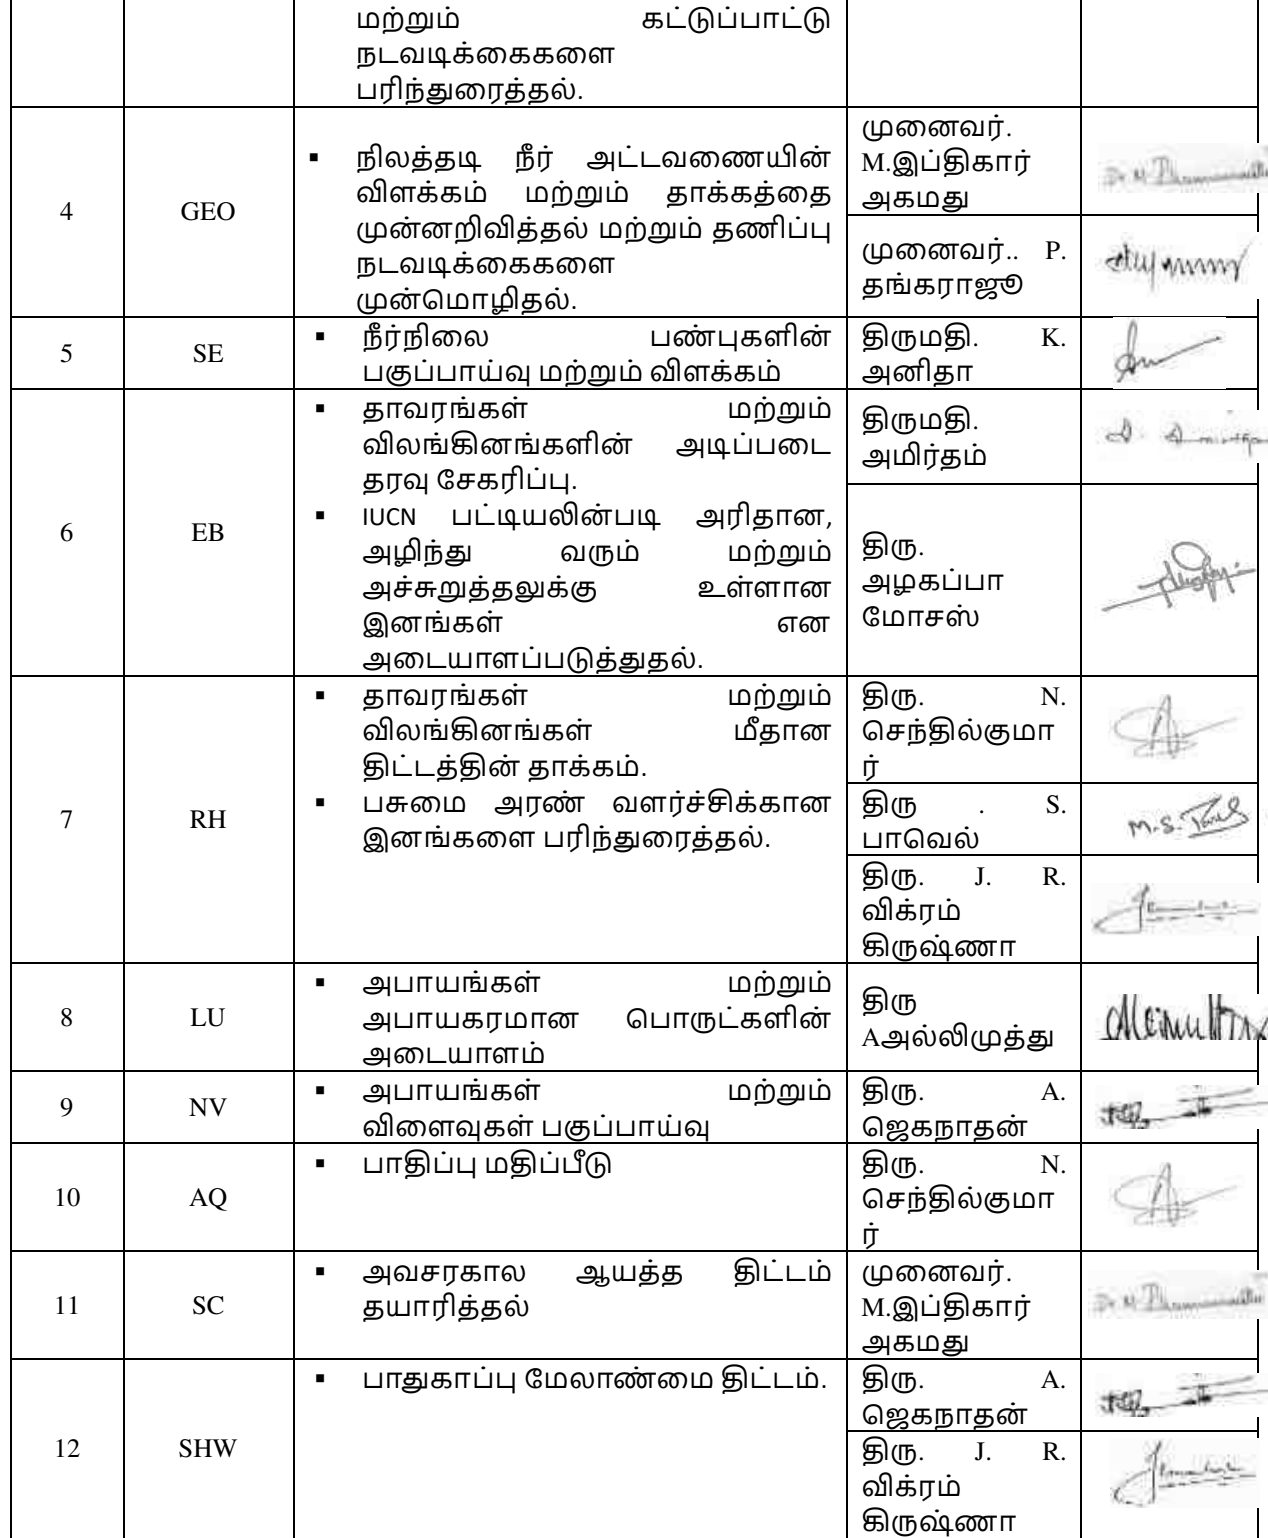 மற்றும் கட்டுப்பாட்டு
நடவடிக்கைகளை
பரிந்துரைத்தல்.
4
GEO
▪ நிலத்தடி நீர் அட்டவணையின்
விளக்கம் மற்றும் தாக்கத்தை
முன்னறிவித்தல் மற்றும் தணிப்பு
நடவடிக்கைகளை
முன்மொழிதல்.
முனைவர்.
M.இப்திகார்
அகமது
முனைவர்.. P.
தங்கராஜூ
5
SE
▪ நீர்நிலை பண்புகளின்
பகுப்பாய்வு மற்றும் விளக்கம்
திருமதி. K.
அனிதா
6
EB
▪ தாவரங்கள் மற்றும்
விலங்கினங்களின் அடிப்படை
தரவு சேகரிப்பு.
▪ IUCN பட்டியலின்படி அரிதான,
அழிந்து வரும் மற்றும்
அச்சுறுத்தலுக்கு உள்ளான
இனங்கள் என
அடையாளப்படுத்துதல்.
திருமதி.
அமிர்தம்
திரு.
அழகப்பா
மோசஸ்
7
RH
▪ தாவரங்கள் மற்றும்
விலங்கினங்கள் மீதான
திட்டத்தின் தாக்கம்.
▪ பசுமை அரண் வளர்ச்சிக்கான
இனங்களை பரிந்துரைத்தல்.
திரு. N.
செந்தில்குமா
ர்
திரு . S.
பாவெல்
M.S.
திரு. J. R.
விக்ரம்
கிருஷ்ணா
8
LU
▪ அபாயங்கள் மற்றும்
அபாயகரமான பொருட்களின்
அடையாளம்
திரு
Aஅல்லிமுத்து
9
NV
▪ அபாயங்கள் மற்றும்
விளைவுகள் பகுப்பாய்வு
திரு. A.
ஜெகநாதன்
10
AQ
▪ பாதிப்பு மதிப்பீடு
திரு. N.
செந்தில்குமா
ர்
11
SC
▪ அவசரகால ஆயத்த திட்டம்
தயாரித்தல்
முனைவர்.
M.இப்திகார்
அகமது
12
SHW
▪ பாதுகாப்பு மேலாண்மை திட்டம்.
திரு. A.
ஜெகநாதன்
திரு. J. R.
விக்ரம்
கிருஷ்ணா